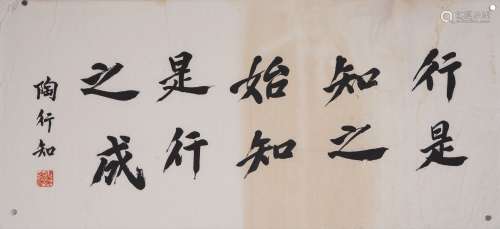 行是
知之
始知
是行
之成
陶行知